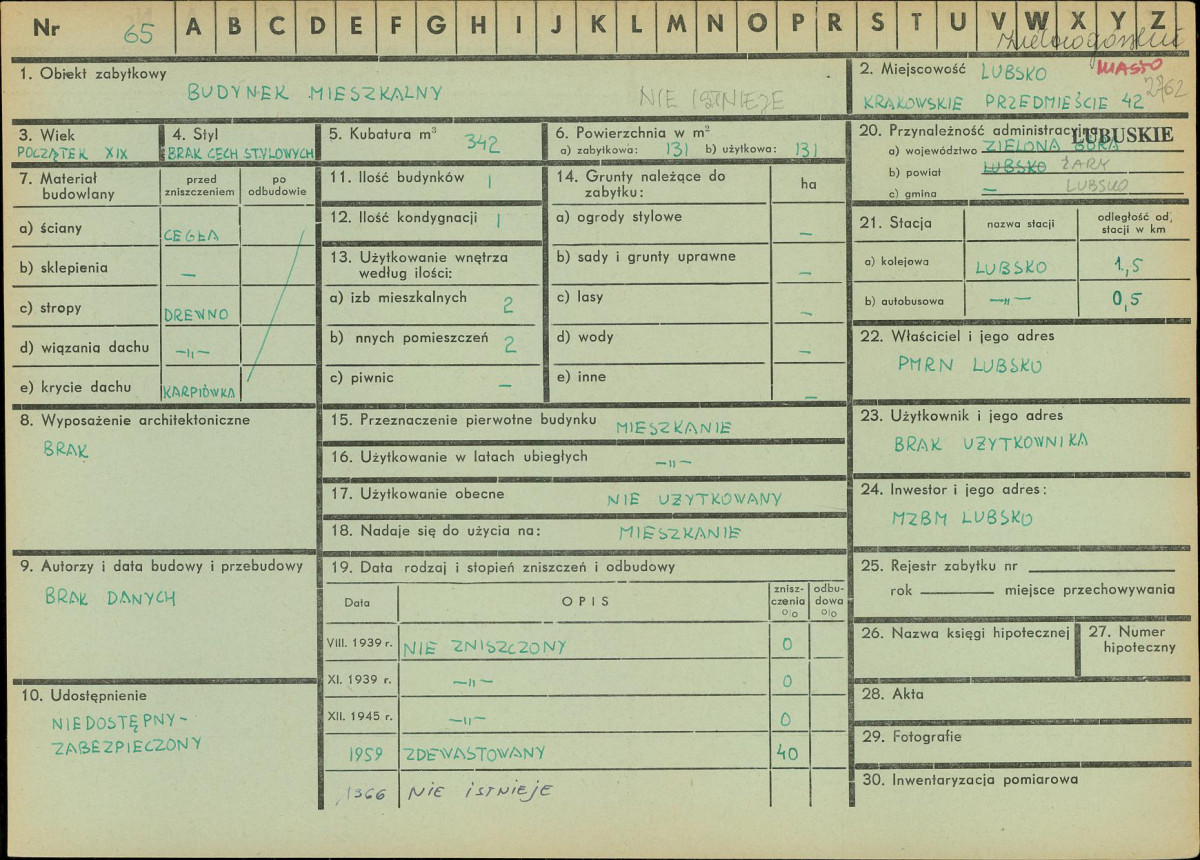 Nr 65 A B C D E F G H I J K L M N O P R S T U V W X Y Z
1. Obiekt zabytkowy
BUDYNEK MIESZKALNY NIE ISTNIEJE
2. Miejscowość LUBSKO MIASTO
KRAKOWSKIE PRZEDMIEŚCIE 42 2762
3. Wiek
POCZĄTEK XIX
4. Styl
BRAK CECH STYLOWYCH
5. Kubatura m³ 342
6. Powierzchnia w m²
a) zabytkowa: 131 b) użytkowa: 131
7. Materiał budowlany
przed zniszczeniem
po odbudowie
a) ściany CEGŁA
b) sklepienia —
c) stropy DREWNO
d) wiązania dachu —„—
e) krycie dachu KARPIÓWKA
8. Wyposażenie architektoniczne
BRAK
9. Autorzy i data budowy i przebudowy
BRAK DANYCH
10. Udostępnienie
NIEDOSTĘPNY-
ZABEZPIECZONY
11. Ilość budynków 1
12. Ilość kondygnacji 1
13. Użytkowanie wnętrza
według ilości:
a) izb mieszkalnych 2
b) nnych pomieszczeń 2
c) piwnic —
14. Grunty należące do
zabytku:
ha
a) ogrody stylowe —
b) sady i grunty uprawne —
c) lasy —
d) wody —
e) inne —
15. Przeznaczenie pierwotne budynku MIESZKANIE
16. Użytkowanie w latach ubiegłych —„—
17. Użytkowanie obecne NIE UŻYTKOWANY
18. Nadaje się do użycia na: MIESZKANIE
19. Data rodzaj i stopień zniszczeń i odbudowy
Data OPIS znisz-czenia % odbu-dowa %
VIII. 1939 r. NIE ZNISZCZONY 0
XI. 1939 r. —„— 0
XII. 1945 r. —„— 0
1959 ZDEWASTOWANY 40
1966 NIE ISTNIEJE
20. Przynależność administracyjna LUBUSKIE
a) województwo ZIELONA GÓRA
b) powiat LUBSKO ŻARY
c) gmina — LUBSKO
21. Stacja
nazwa stacji
odległość od stacji w km
a) kolejowa LUBSKO 1,5
b) autobusowa —„— 0,5
22. Właściciel i jego adres
PMRN LUBSKO
23. Użytkownik i jego adres
BRAK UŻYTKOWNIKA
24. Inwestor i jego adres:
MZBM LUBSKO
25. Rejestr zabytku nr
rok miejsce przechowywania
26. Nazwa księgi hipotecznej
27. Numer
hipoteczny
28. Akta
29. Fotografie
30. Inwentaryzacja pomiarowa